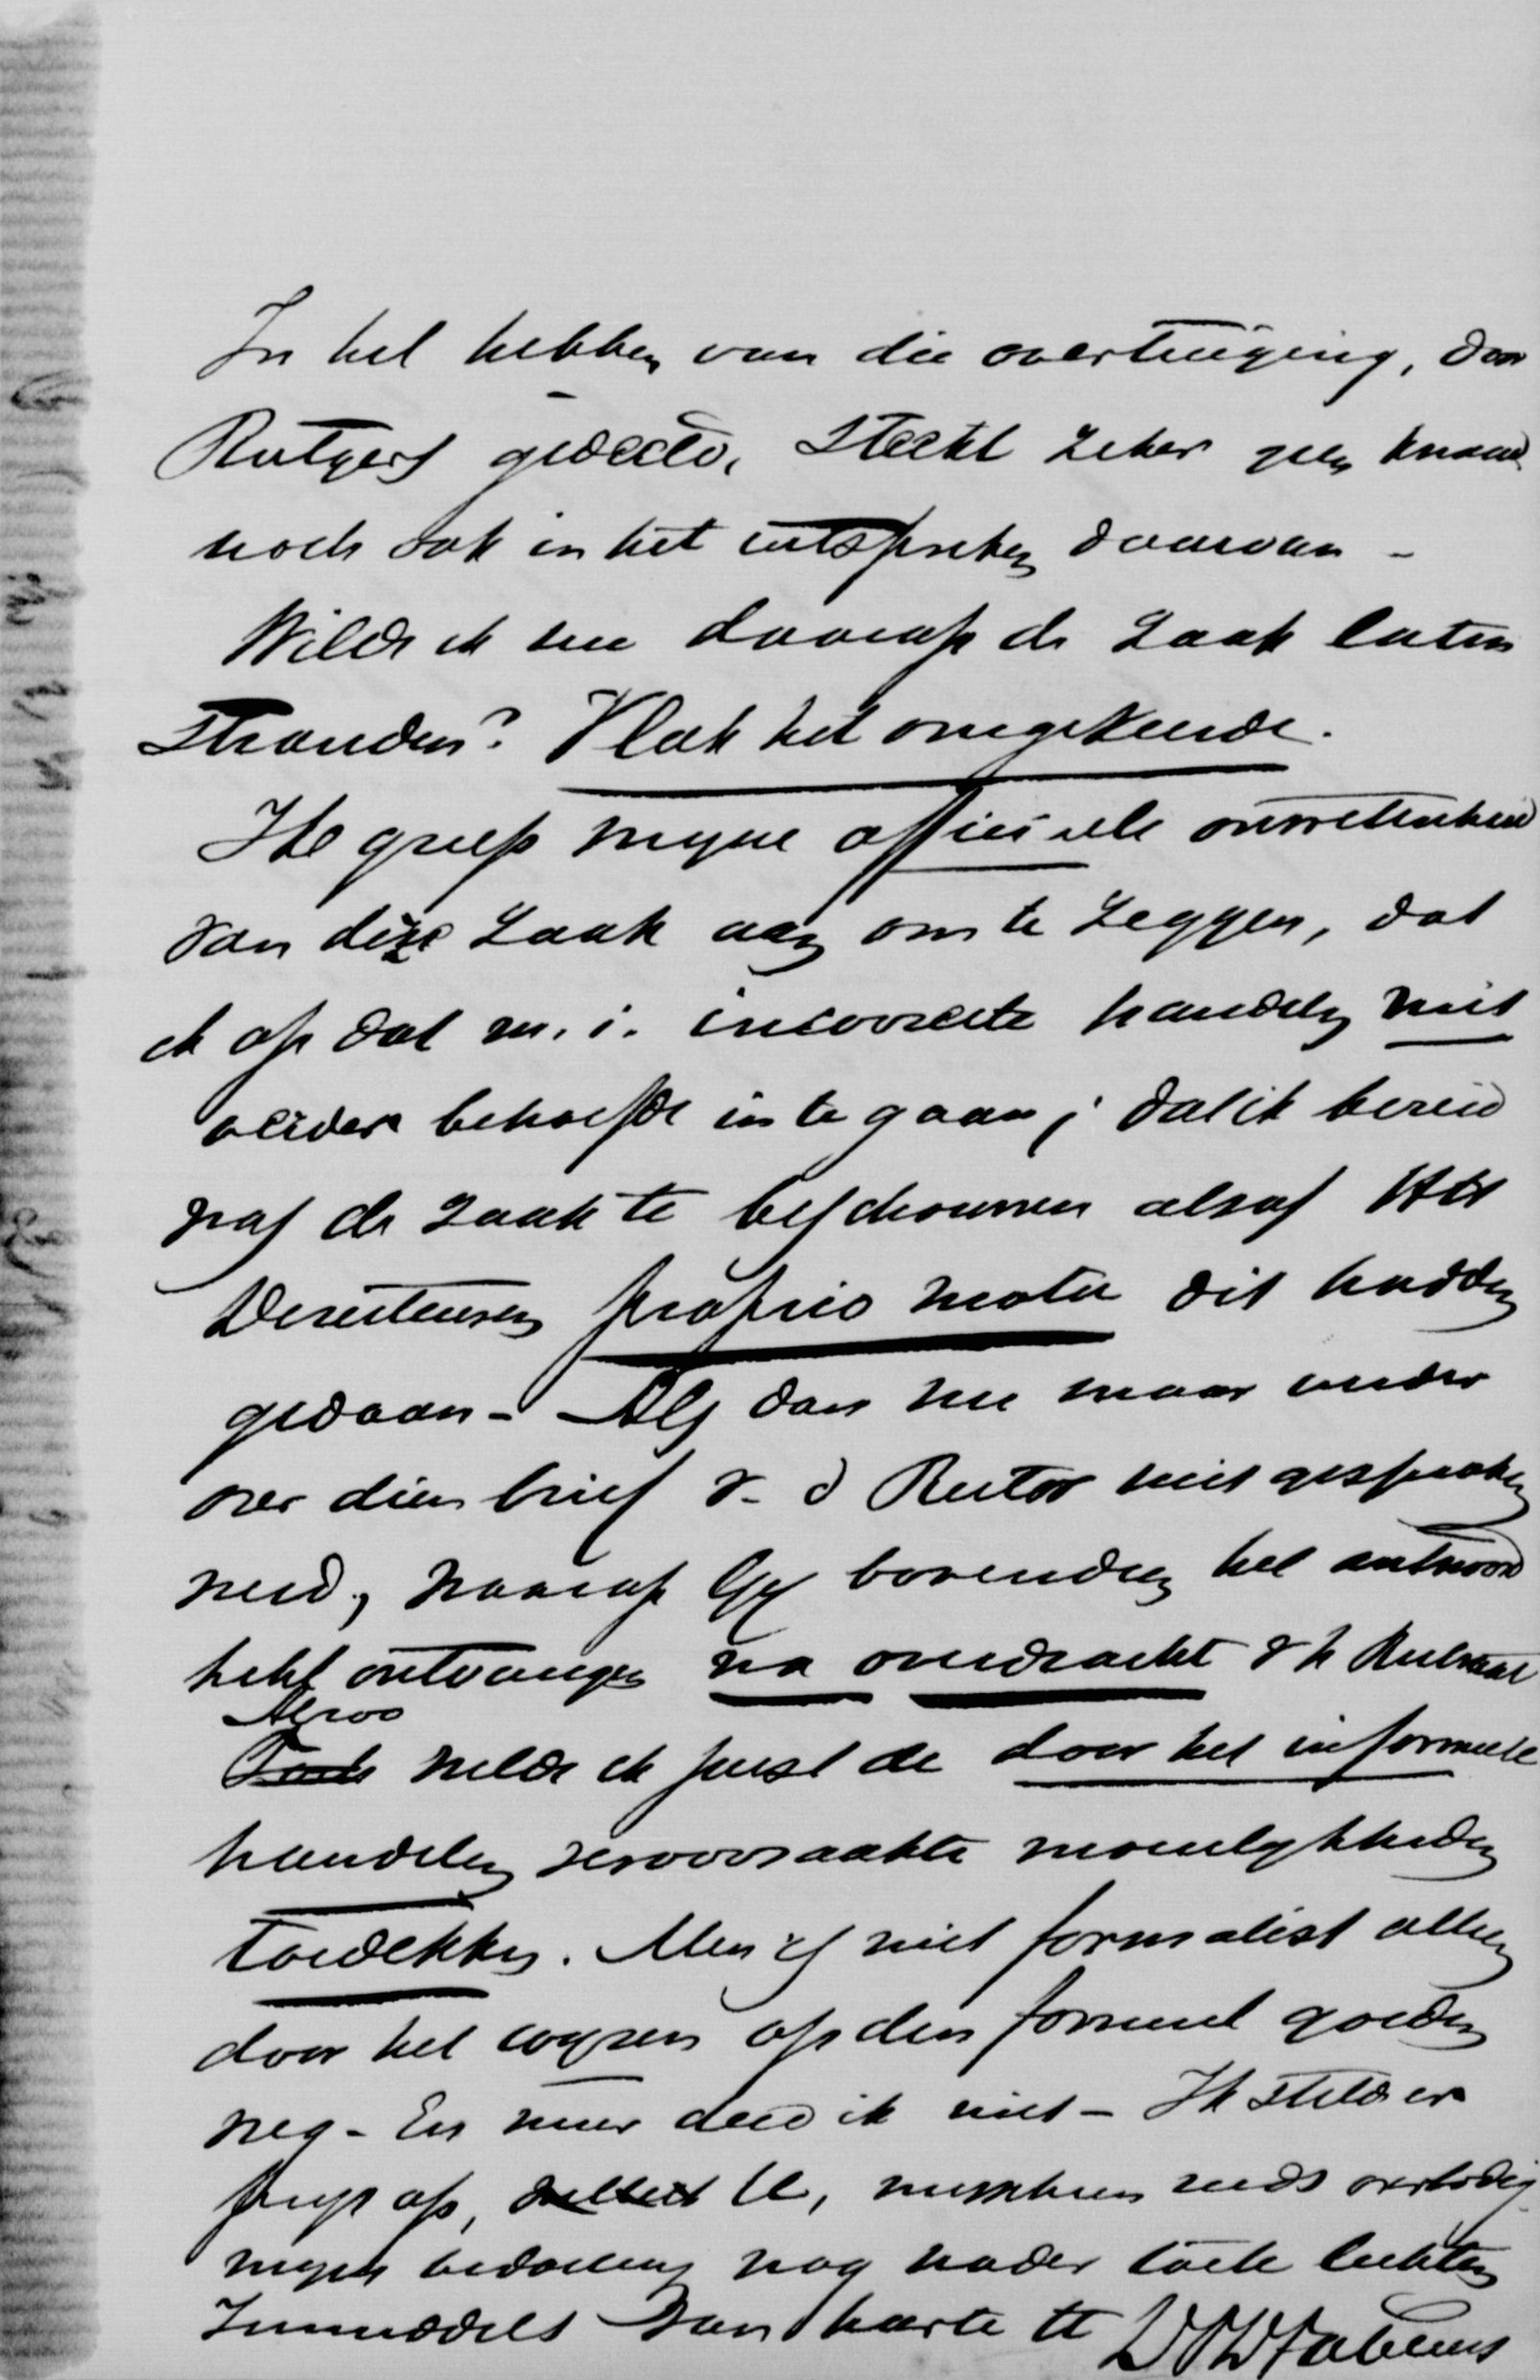 In het hebben van die overtuiging, door
Rutgers gedeeld, steekt zeker geen kwaad
noch ook in het uitspreken daarvan -
Wilde ik nu daarop de zaak laten
stranden? Vlak het omgekeerde.
Ik greep mijne officieele onwetendheid
van deze zaak aan om te zeggen, dat
ik op dat m. i. incorrecte handelen niet
verder behoefde in te gaan; dat ik bereid
was de zaak te beschouwen alsof HH
Directeuren proprio motu dit hadden
gedaan - Als dan nu maar verder
over dien brief v. d Rector niet gesproken
werd, waarop Gij bovendien het antwoord
hebt ontvangen na overdracht v h Rectoraat
Alzoo
wilde ik juist de door het informeele
handelen veroorzaakte moeielijkheden
toedekken. Men is niet formalist alleen
door het wijzen op den formeel goeden
weg - En meer deed ik niet - Ik stelde er
prijs op, U, misschien reeds overbodig
mijne bedoeling nog nader toe te lichten
Inmiddels van harte tt DPDFabius